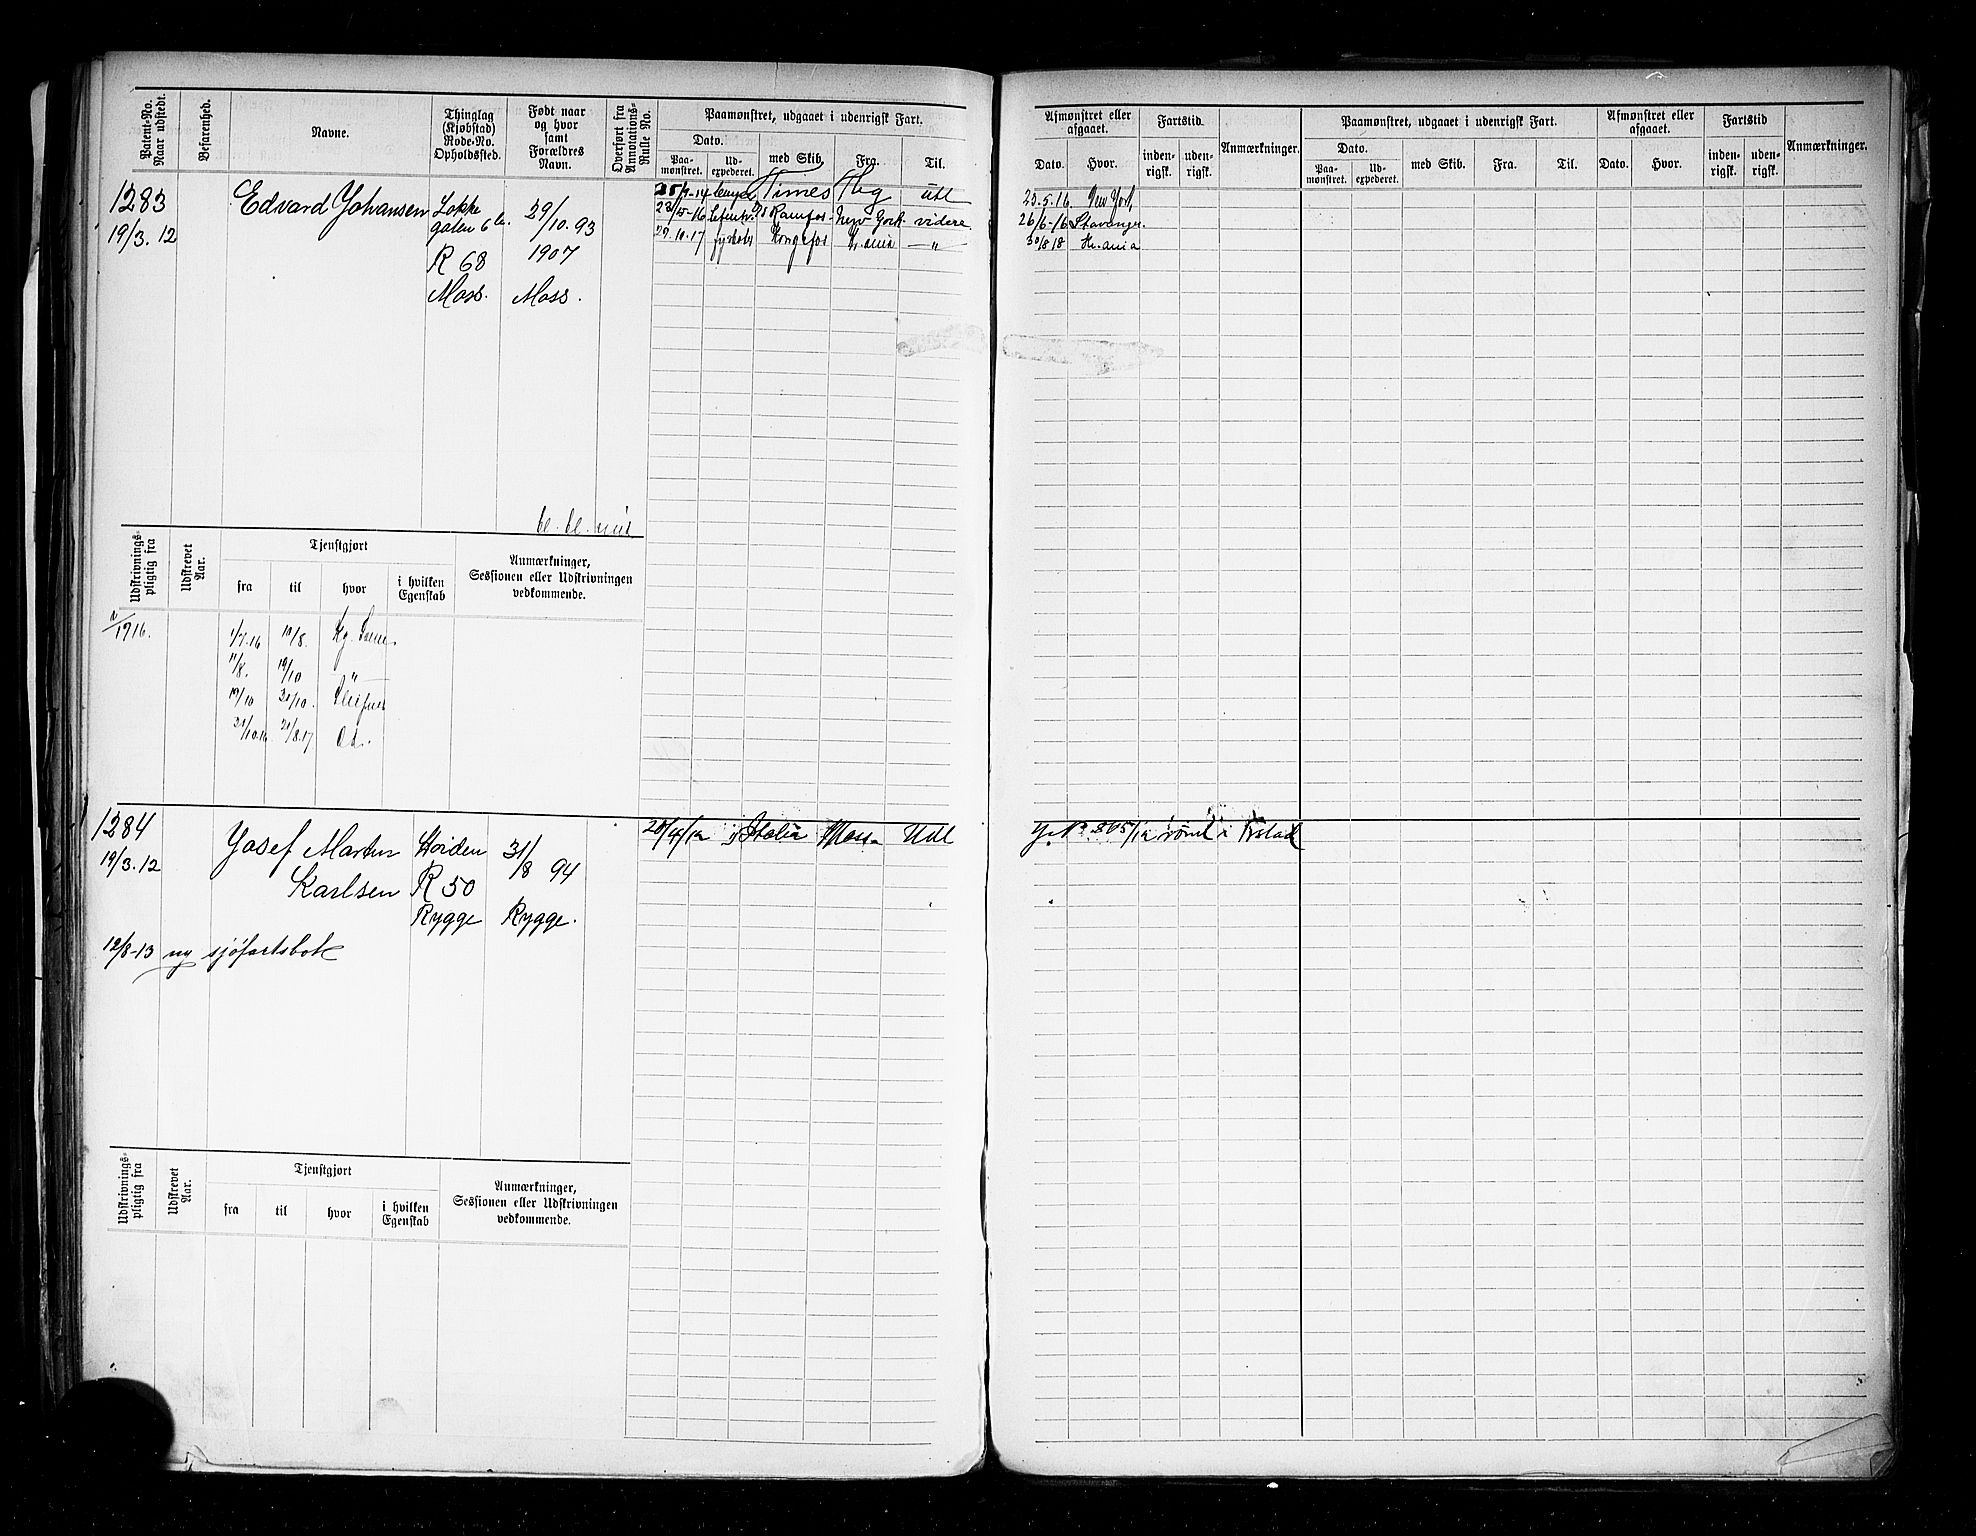 Patent-No. Naar udstedt.
Befarenhed.
Navne.
Thinglag (Kjøbstad) Rode-No. Opholdssted.
Født naar og hvor samt Forældres Navn.
Overført fra Annotations-Rulle No.
Paamønstret, udgaaet i udenrigsk Fart.
Dato.
Paa-mønstret.
Ud-expederet.
med Skib.
Fra.
Til.
1283
19/3. 12
Edvard Johansen
Lokke
gaten 6
R 68
Moss.
29/10. 93
1907
Moss.
Times
utl
Ramfos
New York
videre
29.10.17
Kongsfos
Kr.ania
— " —
Udskrivnings-pligtig fra
Udskrevet Aar.
Tjenstgjort
fra
til
hvor
i hvilken Egenskab
Anmærkninger, Sessionen eller Udskrivningen vedkommende.
1916.
1/7.16 10/8.
11/8. 19/10 "
19/10 31/10.
31/10.16 21/8.17
1284
19/3.12
Josef Martin
Karlsen
R 50
Rygge
31/8 94
Rygge.
Italia
Moss
Utl
12/8-13 ny sjøfartsbok
Udskrivnings-pligtig fra
Udskrevet Aar.
Tjenstgjort
fra
til
hvor
i hvilken Egenskab
Anmærkninger, Sessionen eller Udskrivningen vedkommende.
Afmønstret eller afgaaet.
Dato.
Hvor.
Fartstid.
inden-rigsk.
uden-rigsk.
Anmærkninger.
Paamønstret, udgaaet i udenrigsk Fart.
Dato.
Paa-mønstret.
Ud-expederet.
med Skib.
Fra.
Til.
Afmønstret eller afgaaet.
Dato.
Hvor.
Fartstid
inden-rigsk.
uden-rigsk.
Anmærkninger.
23.5.16. New York
26/6-16 Stavanger.
30/8 18 Kr.ania
rømt i